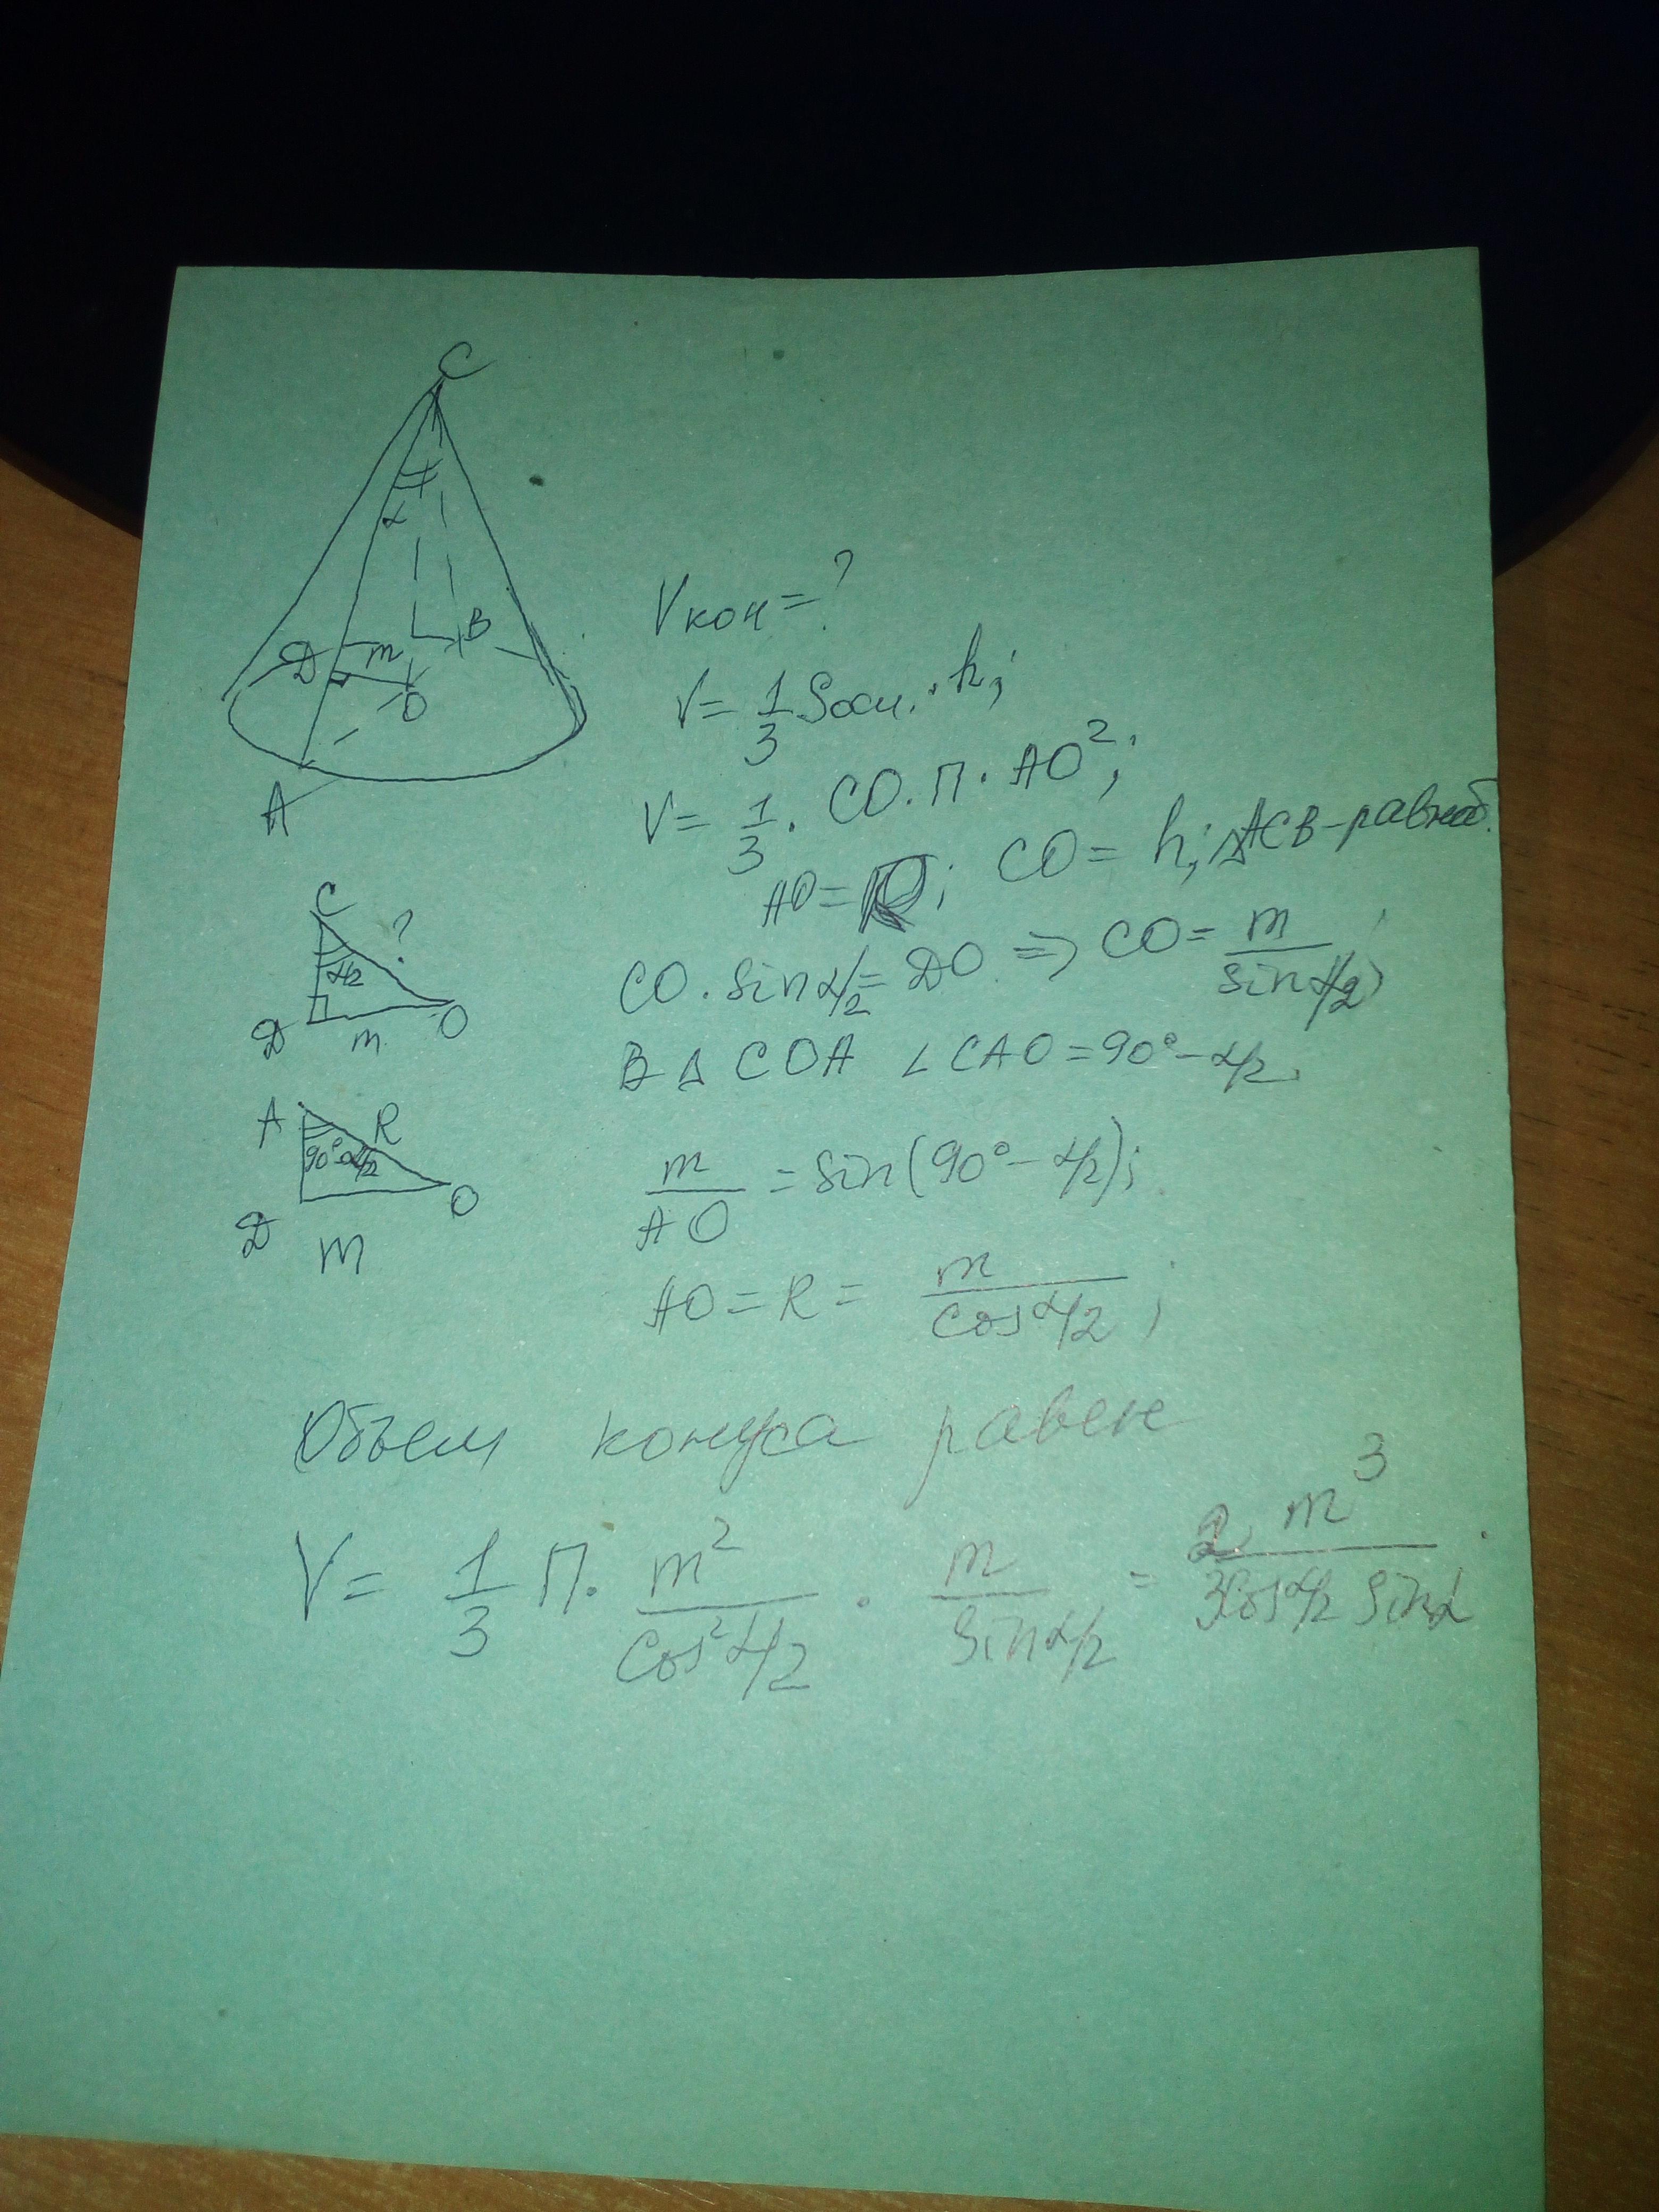 C
α
D m O B
A
Vкон = ?
V = 1/3 Sосн. · h;
V = 1/3 · CO · П · AO²;
AO = R; CO = h; ΔACB – равноб.
C ?
α/2
D m O
CO · sin α/2 = DO ⇒ CO = m / sin α/2;
В Δ COA ∠CAO = 90° – α/2.
A R
90° – α/2
D O
m
m / AO = sin(90° – α/2);
AO = R = m / cos α/2;
Объем конуса равен
V = 1/3 П · m² / cos² α/2 · m / sin α/2 = 2 m³ / 3cos α/2 sin α.